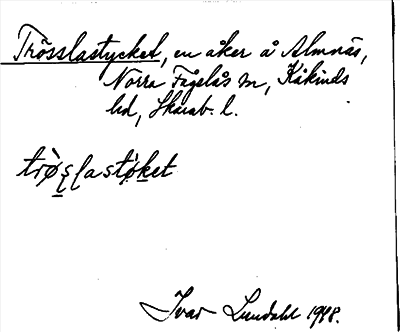 Trösslastycket, en åker å Almnäs,
Norra Fågelås sn, Kåkinds
hd, Skarab. l.
trø̀slastø̀ket
Ivar Lundahl 1948.